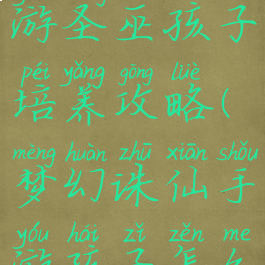 游圣巫孩子
péi yǎng gōng lüè
培养攻略(
mèng huàn zhū xiān shǒu
梦幻诛仙手
yóu hái zǐ zěn me
游孩子怎么